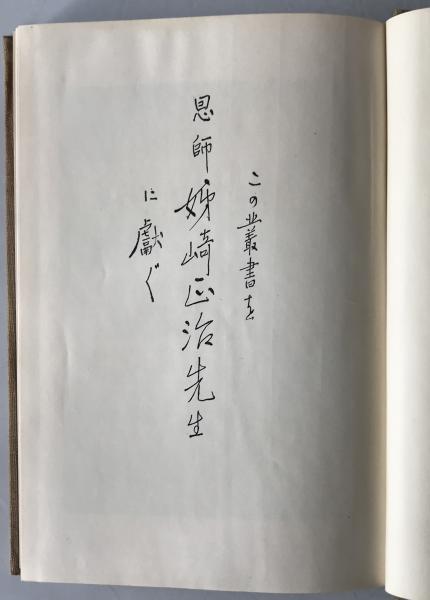 この叢書を
恩師姉崎正治先生
に獻ぐ